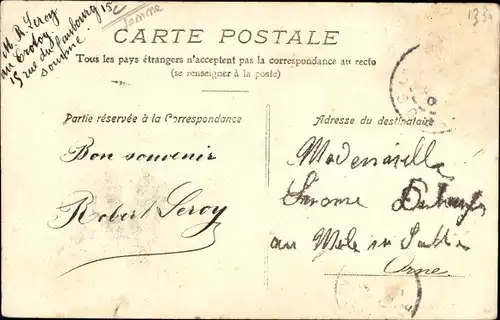 M. R. Leroy
au Crotoy
15 rue du faubourg
Somme
15c
Somme
133
CARTE POSTALE
Tous les pays étrangers n'acceptent pas la correspondance au recto
(se renseigner à la poste)
Partie réservée à la Correspondance
Bon souvenir
Robert Leroy
Adresse du destinataire
Mademoiselle
au Mele su
Orne